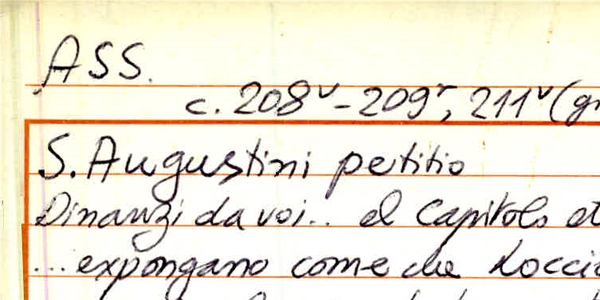 ASS.
c. 208v - 209r, 211v (gr
S. Augustini petitio
Dinanzi da voi.. el Capitolo et
...expongano come che